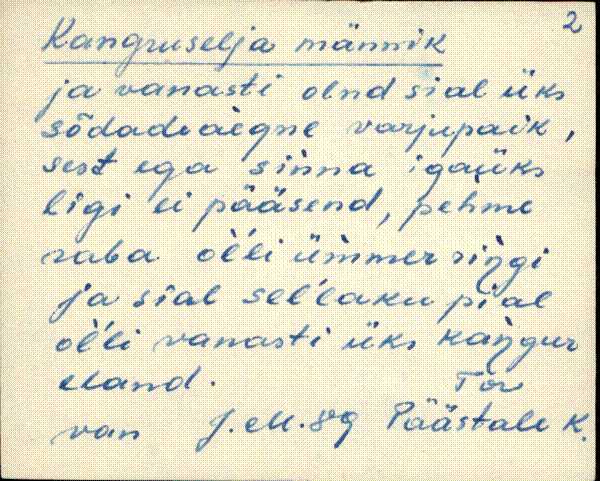 2
Kangruselja männik
ja vanasti olnd sial üks
sõdadeaègne varjupaik,
sest ega sinna igaüks
ligi ei pääsend, pehme
raba òl'li ümmerringi
ja sial sel'laku pial
òl'li vanasti üks kangur
eland. Tor
van J. M. 89 Päästale K.